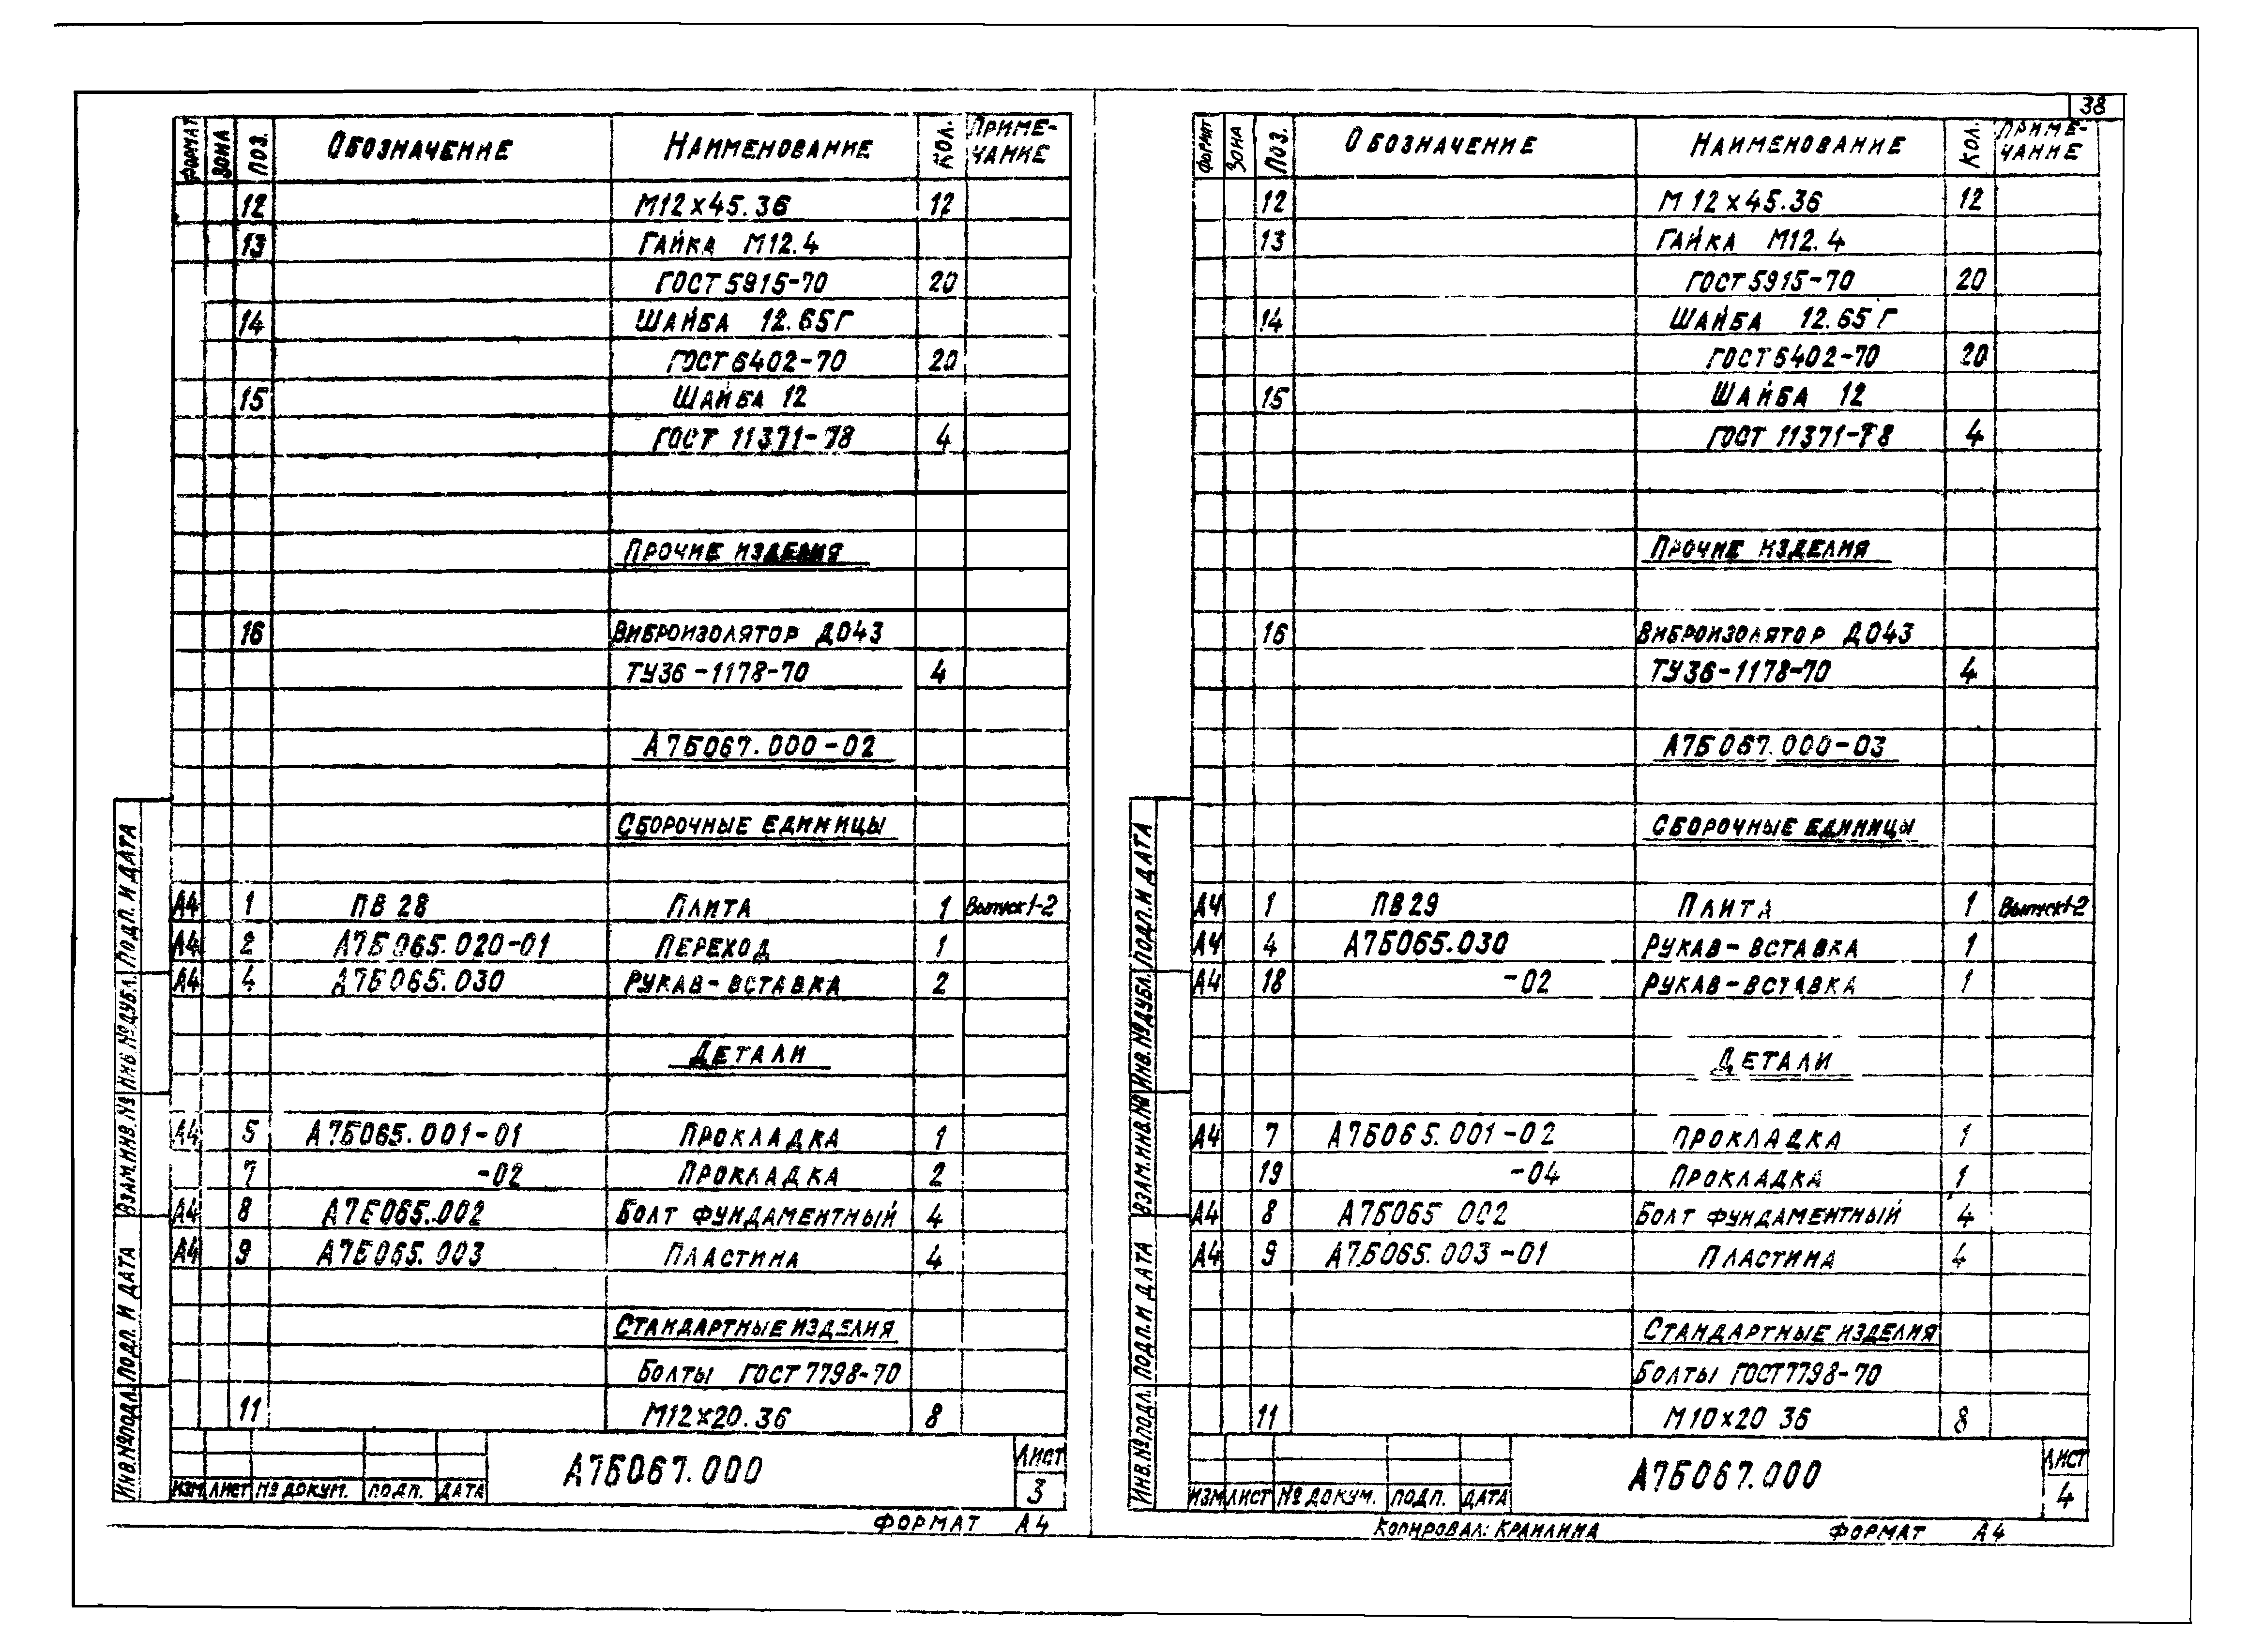 38
ФОРМАТ ЗОНА ПОЗ. ОБОЗНАЧЕНИЕ НАИМЕНОВАНИЕ КОЛ. ПРИМЕ-
ЧАНИЕ
12 М12×45.36 12
13 ГАЙКА М12.4
ГОСТ 5915-70 20
14 ШАЙБА 12.65Г
ГОСТ 6402-70 20
15 ШАЙБА 12
ГОСТ 11371-78 4
ПРОЧИЕ ИЗДЕЛИЯ
16 ВИБРОИЗОЛЯТОР ДО43
ТУ36-1178-70 4
А7Б067.000-02
СБОРОЧНЫЕ ЕДИНИЦЫ
А4 1 ПВ 28 ПЛИТА 1 Выпуск 1-2
А4 2 А7Б065.020-01 ПЕРЕХОД 1
А4 4 А7Б065.030 РУКАВ-ВСТАВКА 2
ДЕТАЛИ
А4 5 А7Б065.001-01 ПРОКЛАДКА 1
7 -02 ПРОКЛАДКА 2
А4 8 А7Б065.002 БОЛТ ФУНДАМЕНТНЫЙ 4
А4 9 А7Б065.003 ПЛАСТИНА 4
СТАНДАРТНЫЕ ИЗДЕЛИЯ
БОЛТЫ ГОСТ 7798-70
11 М12×20.36 8
ИНВ.№ПОДЛ. ПОДП. И ДАТА ВЗАМ.ИНВ.№ ИНВ.№ДУБЛ. ПОДП. И ДАТА
А7Б067.000
ЛИСТ
3
ИЗМ ЛИСТ № ДОКУМ. ПОДП. ДАТА
ФОРМАТ А4
ФОРМАТ ЗОНА ПОЗ. ОБОЗНАЧЕНИЕ НАИМЕНОВАНИЕ КОЛ. ПРИМЕ-
ЧАНИЕ
12 М12×45.36 12
13 ГАЙКА М12.4
ГОСТ 5915-70 20
14 ШАЙБА 12.65Г
ГОСТ 6402-70 20
15 ШАЙБА 12
ГОСТ 11371-78 4
ПРОЧИЕ ИЗДЕЛИЯ
16 ВИБРОИЗОЛЯТОР ДО43
ТУ36-1178-70 4
А7Б067.000-03
СБОРОЧНЫЕ ЕДИНИЦЫ
А4 1 ПВ29 ПЛИТА 1 Выпуск 1-2
А4 4 А7Б065.030 РУКАВ-ВСТАВКА 1
А4 18 -02 РУКАВ-ВСТАВКА 1
ДЕТАЛИ
А4 7 А7Б065.001-02 ПРОКЛАДКА 1
19 -04 ПРОКЛАДКА 1
А4 8 А7Б065 002 БОЛТ ФУНДАМЕНТНЫЙ 4
А4 9 А7Б065.003-01 ПЛАСТИНА 4
СТАНДАРТНЫЕ ИЗДЕЛИЯ
БОЛТЫ ГОСТ 7798-70
11 М10×20 36 8
ИНВ.№ПОДЛ. ПОДП. И ДАТА ВЗАМ.ИНВ.№ ИНВ.№ДУБЛ. ПОДП. И ДАТА
А7Б067.000
ЛИСТ
4
ИЗМ ЛИСТ № ДОКУМ. ПОДП. ДАТА
КОПИРОВАЛ: КРАИЛИНА ФОРМАТ А4